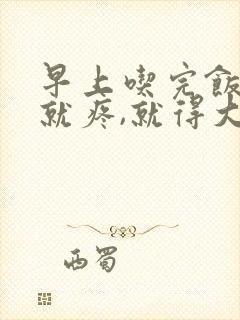 早上喫完飯
就疼,就得大
西蜀